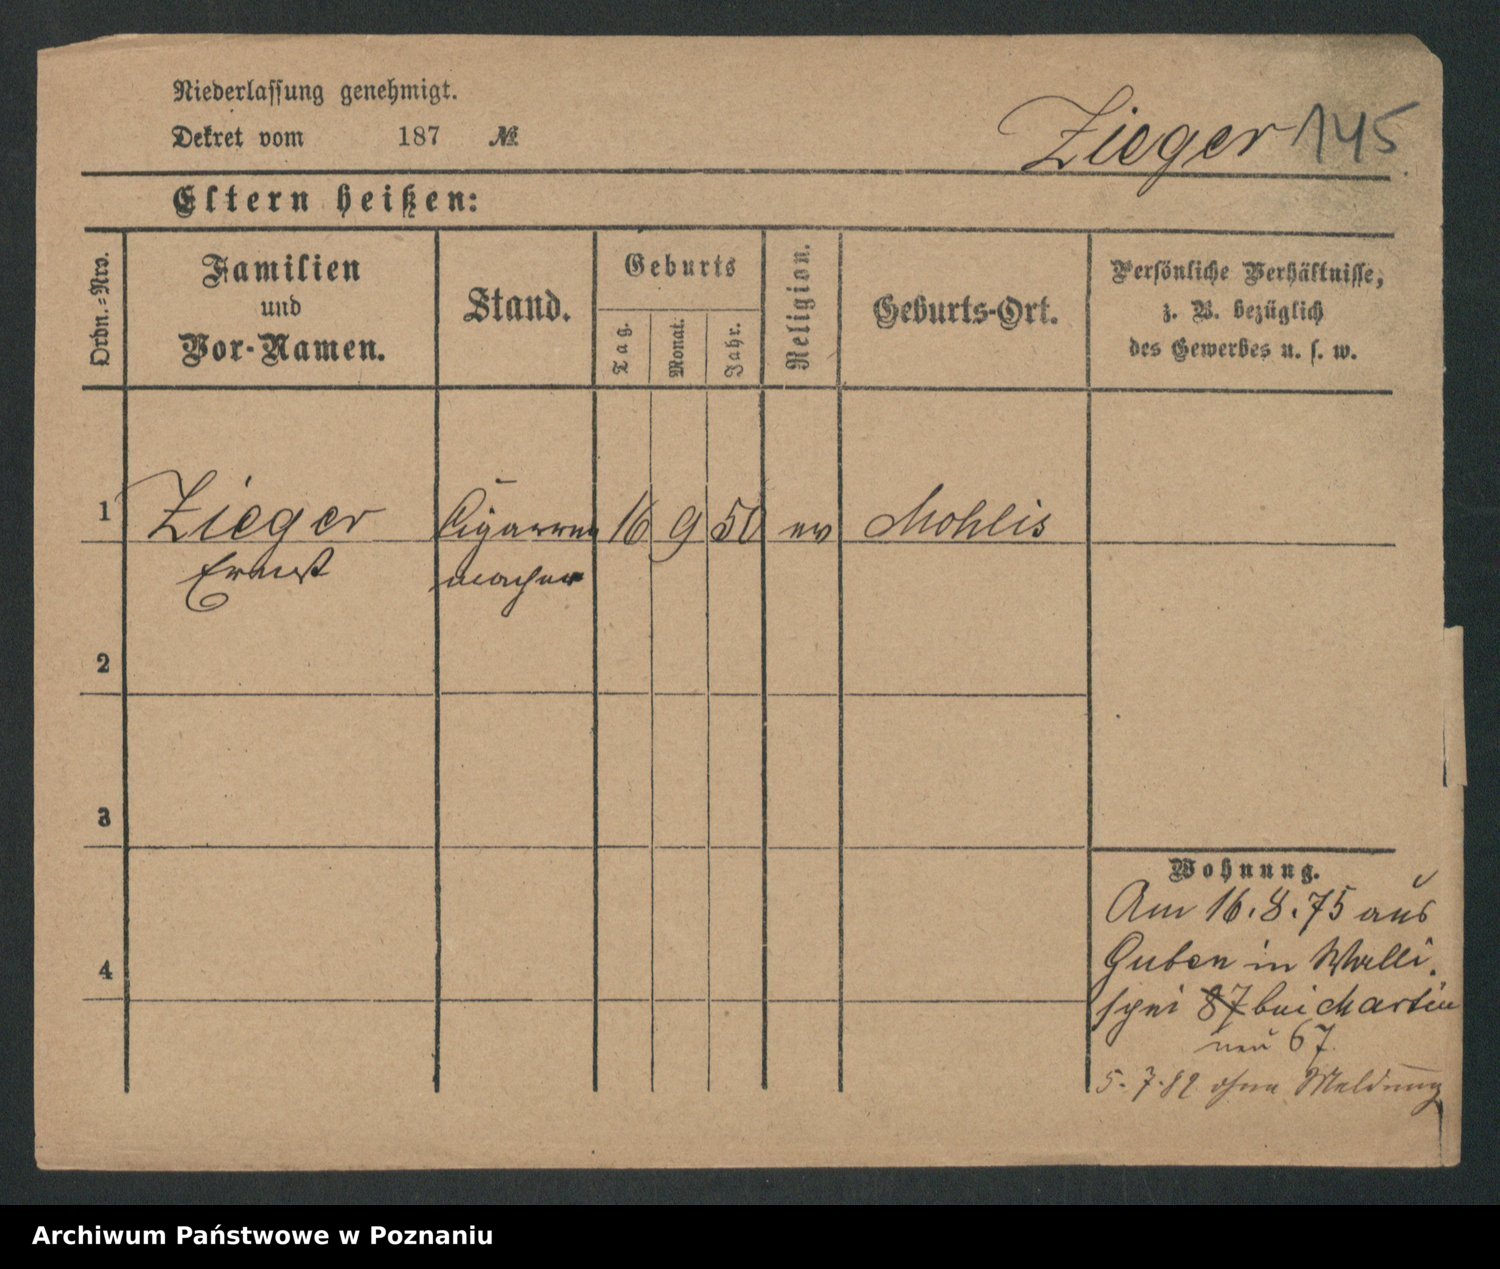 Niederlassung genehmigt.
Dekret vom 187 №
Zieger 145
Eltern heißen:
Ordn.-Nro.
Familien
und
Vor-Namen.
Stand.
Geburts
Tag.
Monat.
Jahr.
Religion.
Geburts-Ort.
Persönliche Verhältnisse,
z. B. bezüglich
des Gewerbes u. s. w.
1 Zieger Cigarren 16 9 50 ev Mohlis
Ernst macher
2
3
4
Wohnung.
Am 16.8.75 aus
Guben in Walli
schei 87 bei Martin
neu 67
5.7.82 ohne Meldung
Archiwum Państwowe w Poznaniu